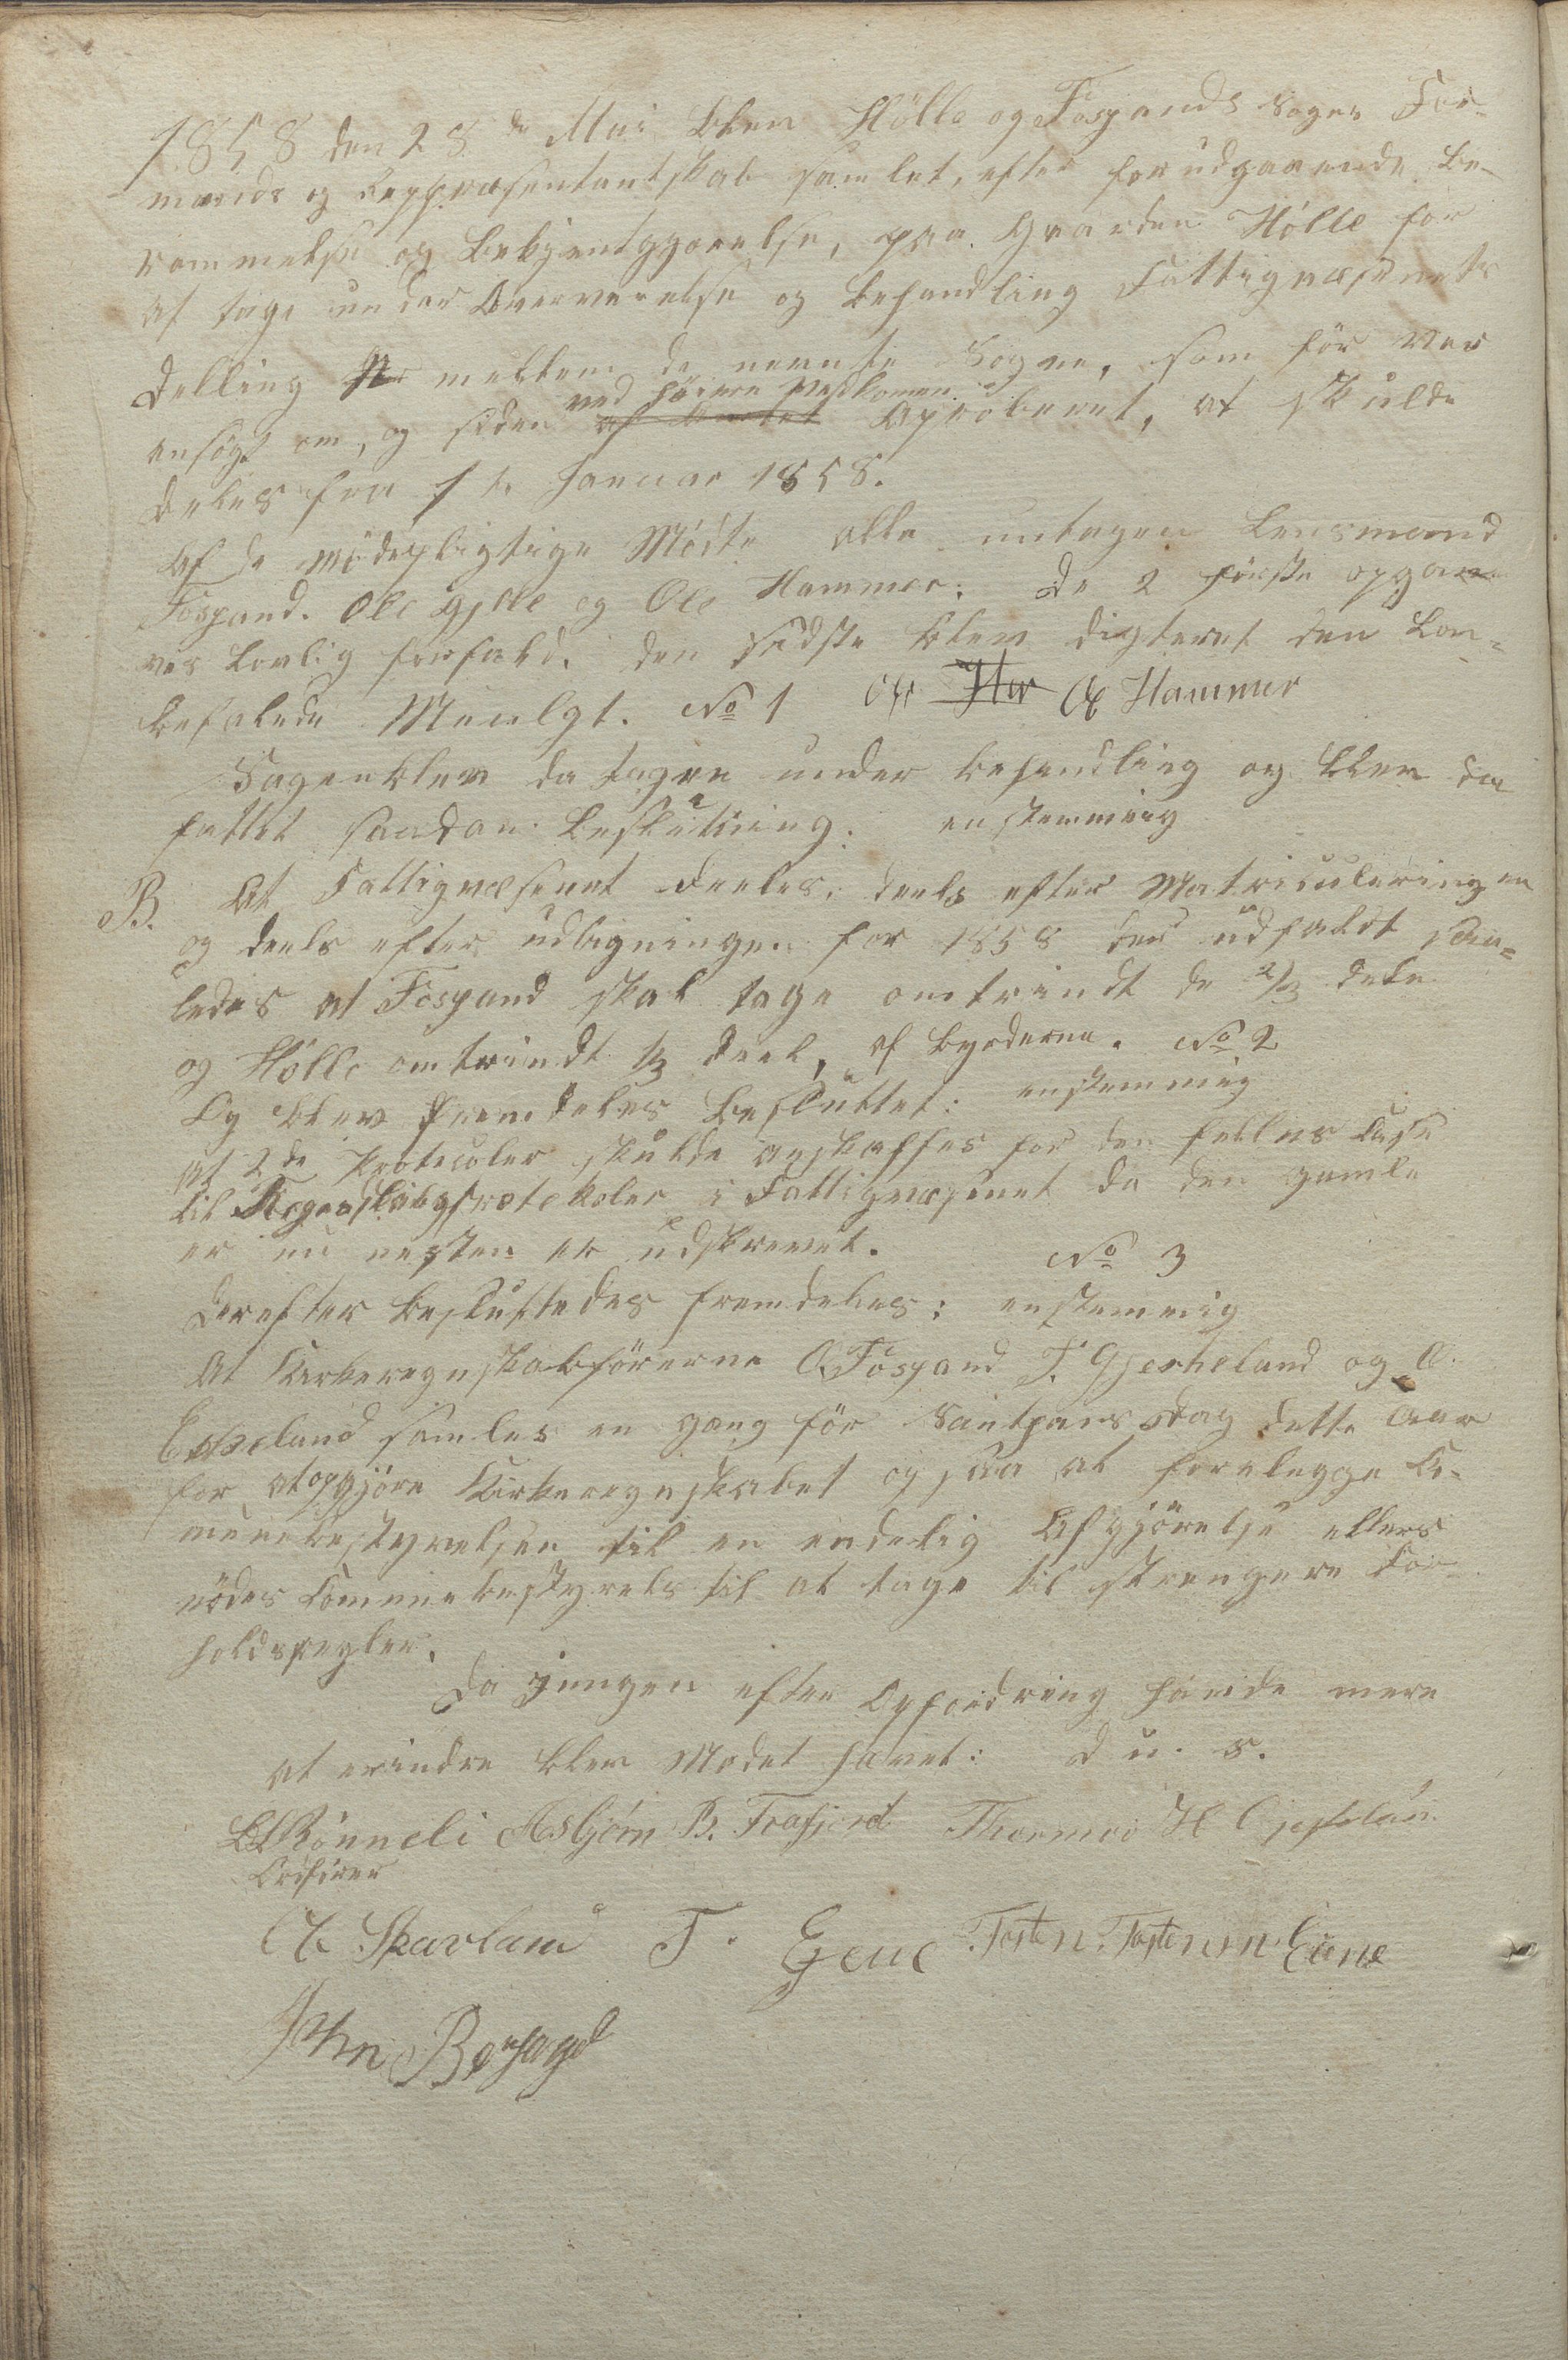 1858 den 28de Mai blev Hölle og Fospands Sogns For-
mands og Reppræsentantskab samlet, efter forudgaaende Be-
rammelse og Bekjentgjørelse, paa Gaarden Hölle for
at tage under Oververelse og Behandling Fattigvæsenets
Delling mellem de nevnte Sogne, som för var
ved höiere Vedkommen
ansögt om, og siden af Amtet Aproberet, at skulde
deles fra 1te Januar 1858.
Af de mödepligtige Mödte alle untagen Lensmand
Fospand. Ole Gjlle og Ole Hammer. De 2 förste opgav
vis Lovlig forfald, den sidste blev digteret den Lov-
befalede Muelgt. No 1 Ole Hammer
Sagen blev da tagen under behandling og blev da
fattet saadan Beslutning: enstemmig
B. At Fattigvæsenet deeles, deels efter Matriculeringen
og deels efter udligningen for 1858 der udfaldt saa-
ledes at Fospand skal tage omtrindt de 2/3 dele
og Hölle omtrindt 1/3 deel, af byrderne. No 2
Og blev fremdeles besluttet: enstemmig
at 2de Protocoler skulde anskaffes for den felles Kasse
til Regenskabsprotokoler i Fattigvæsenet da den gamle
er nu nesten er udskrevet. No 3
Derefter besluttedes fremdeles: enstemmig
At Kirkeregnskabförerne O. Fospand T. Gjesheland og O.
Eskeland samles en gang för Santhans Dag dette Aar
for at opgjöre Kirkeregnskabet og saa at forelegge Co-
munebestyrelsen til en endelig Afgjörelse ellers
nödes Comunebestyrels til at tage til strengere For-
holdsregler.
Da Jngen efter Opfordring havde mere
at erindre blev Mödet hævet: d u. s.
Rönneli Asbjörn B. Frafjord Thormod H
Ordförer
O. Skavland T. Eene Tosten Tostensen Eene
John Bershagel